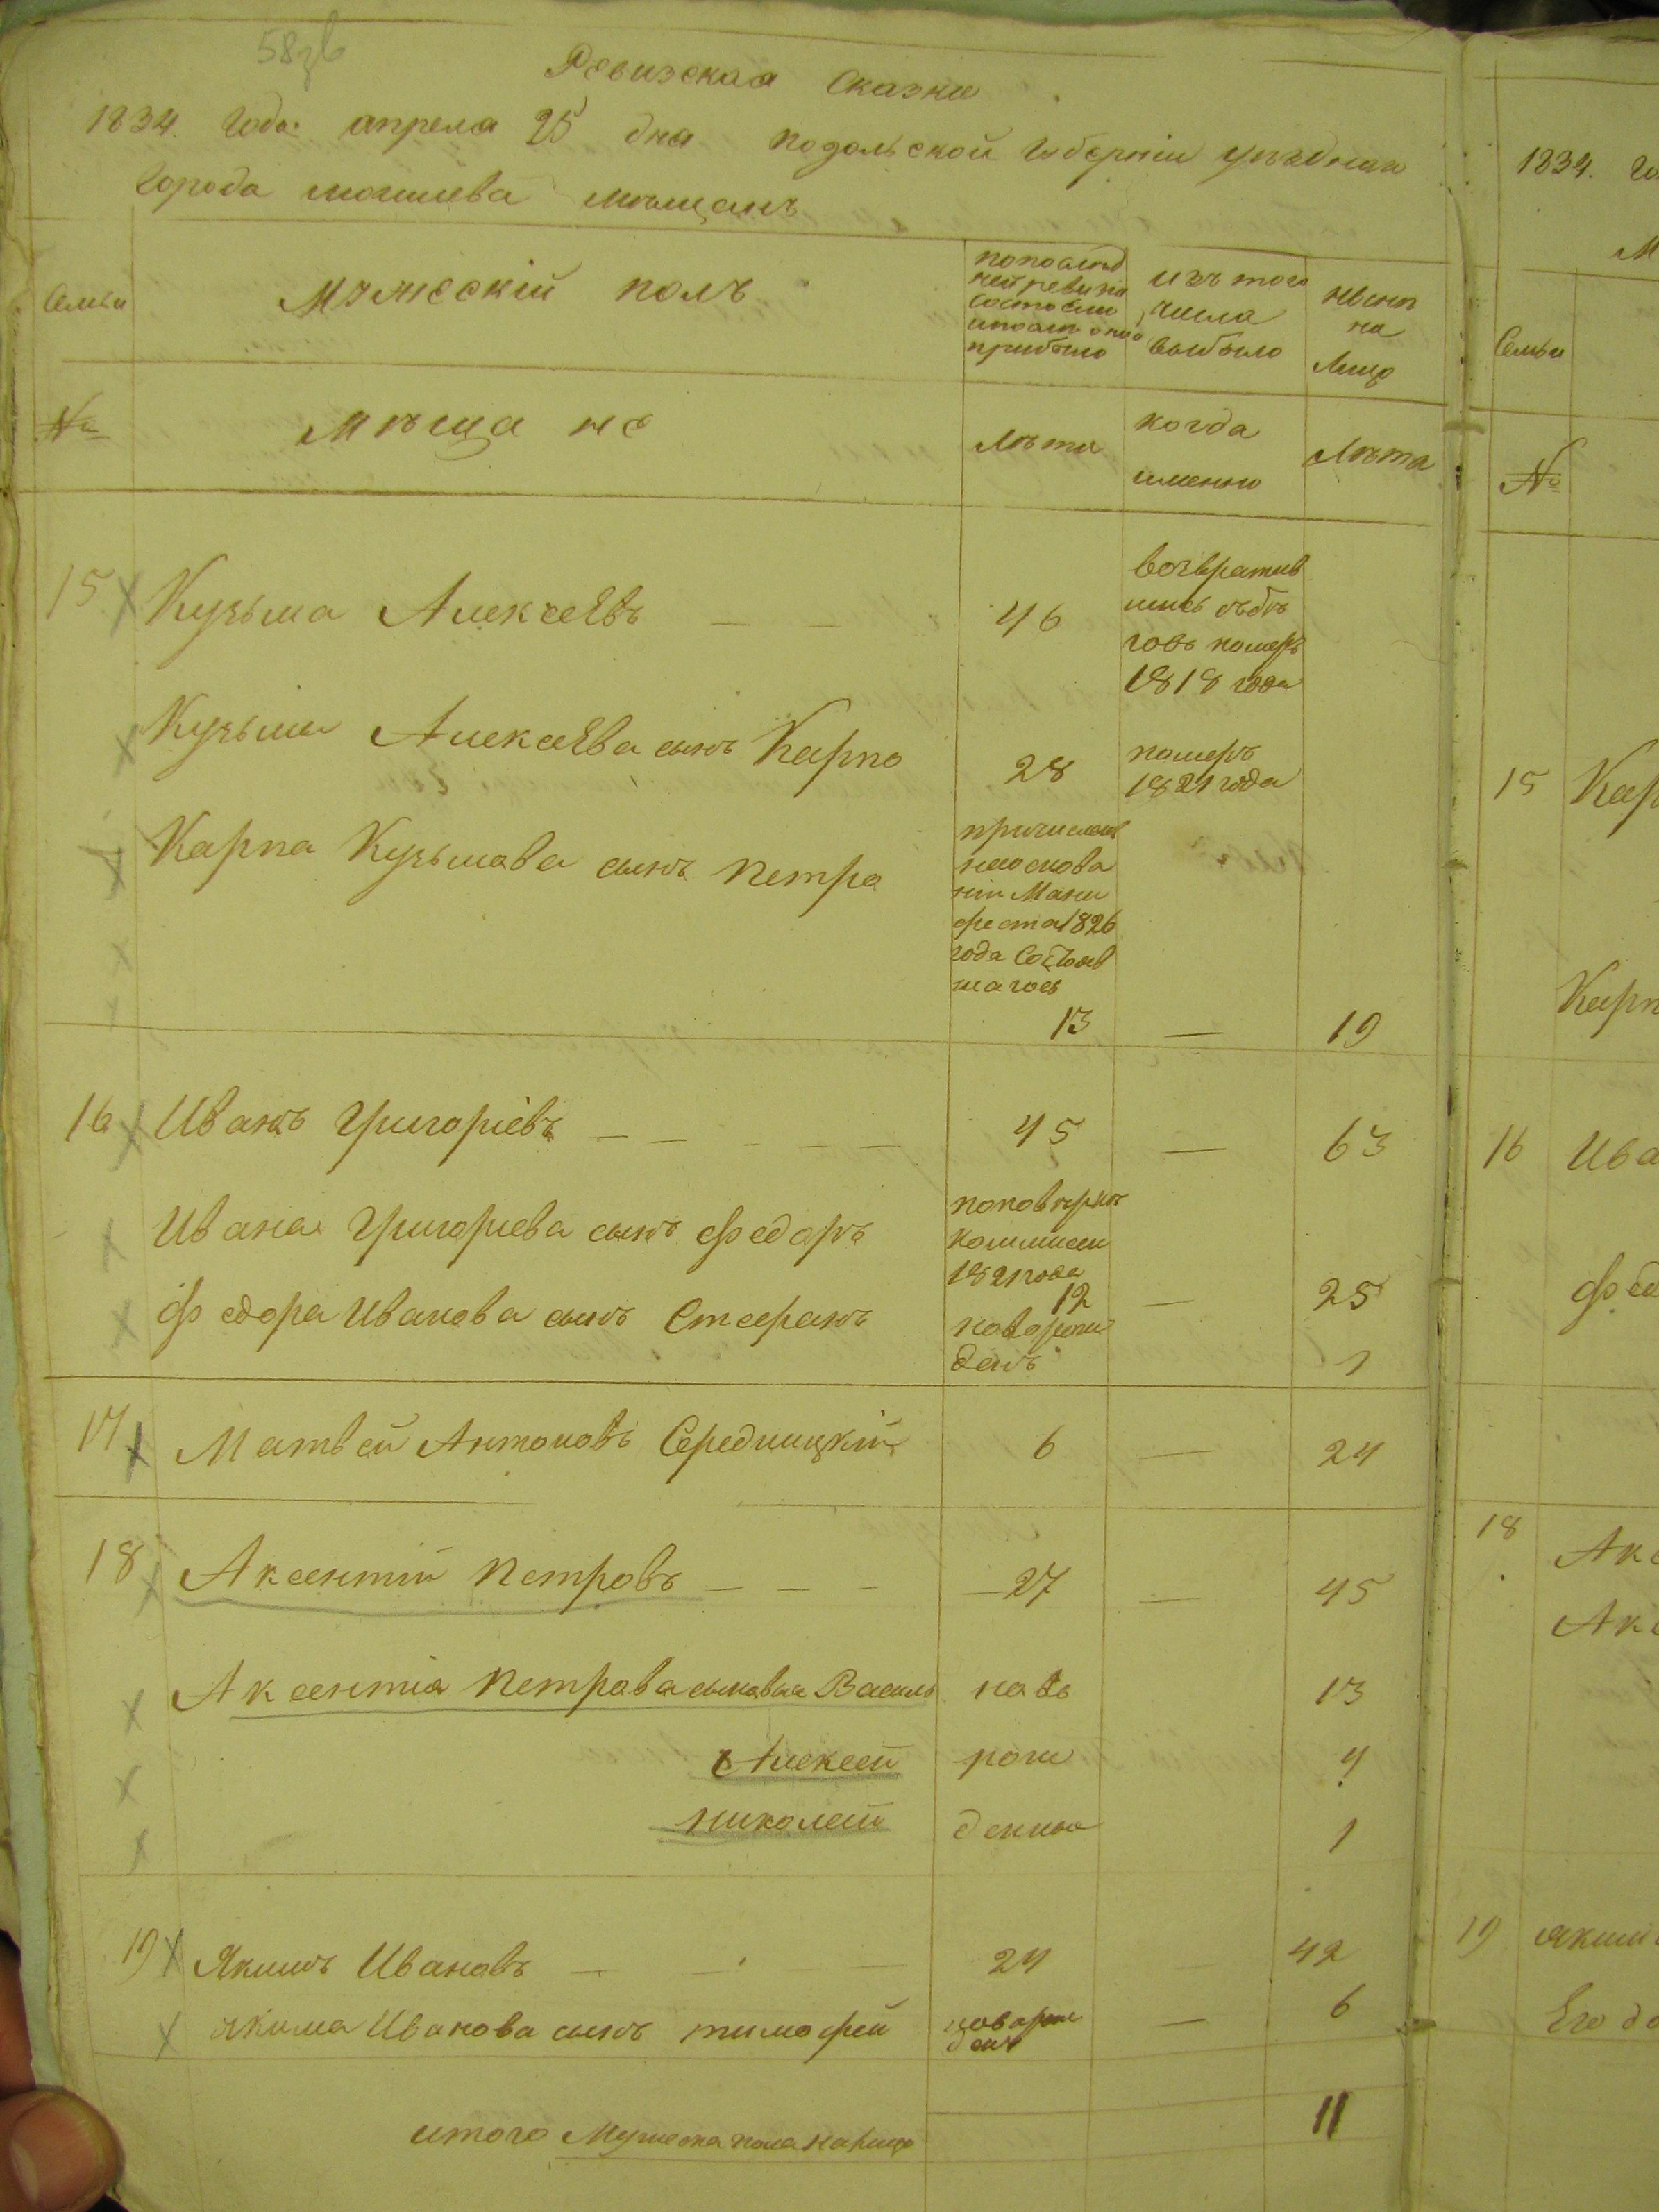 58зв
Ревизская Сказка
1834. Года апреля 25 дня подольской губерніи уѣзднаго
города могилева мѣщанъ
Семьи
Мужескій полъ
по послѣд
ней ревизіи
состояло
и послѣ оной
прибыло
изъ того
числа
выбыло
нынѣ
на
Лицо
№
Мѣщане
Лѣта
когда
именно
Лѣта
15 Кузьма Алексѣевъ — — 46
возвратив
шись съ бѣ
говъ померъ
1818 года
Кузьмы Алексѣева сынъ Карпо 28
померъ
1821 года
Карпа Кузьмова сынъ Петро
причисленъ
на основа
ніи Мани
феста 1826
года Состояв
шагось
13 — 19
16 Иванъ Григоріевъ — — — — 45 — 63
Ивана Григориева сынъ Федоръ
по повѣрки
коммисіи
1821 года
12 — 25
Федора Иванова сынъ Стефанъ
новорож
денъ
1
17 Матвей Антоновъ Середницкій 6 — 24
18 Аксентий Петровъ — — — 27 — 45
Аксентия Петрова сыновья Василь ново 13
Алексей рож 4
николай денные 1
19 Якимъ Ивановъ — — — 24 42
якима Иванова сынъ тимофей
новорож
денъ
— 6
итого Мужеска пола на лицо 11
1834. Го
М
Семьи
№
15 Кар
Карп
16 Ива
Фед
18 Акс
Акс
19 яким
Его до